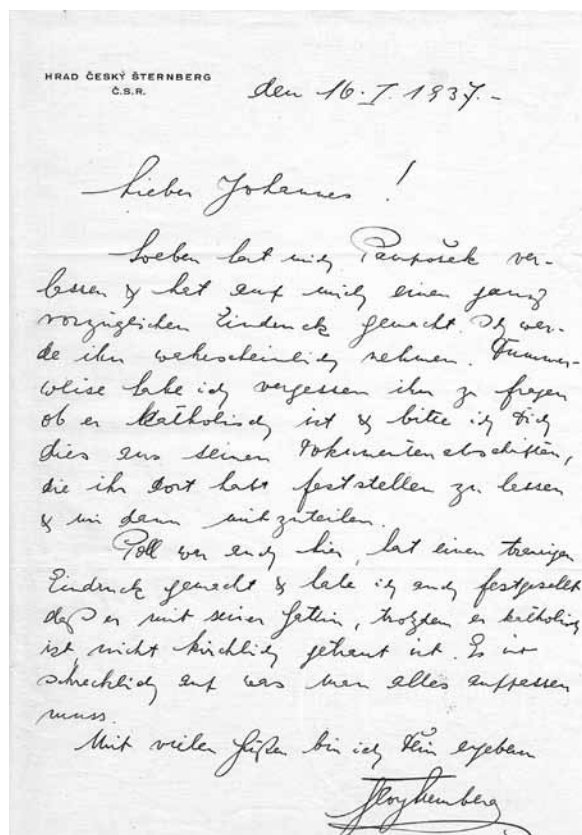 HRAD ČESKÝ ŠTERNBERG
Č.S.R.
den 16. I. 1937.-
Lieber Johannes !
Soeben hat mich Paurošek ver-
lassen & hat auf mich einen ganz
vorzüglichen Eindruck gemacht. Ich wer-
de ihn wahrscheinlich nehmen. Dummer-
weise habe ich vergessen ihn zu fragen
ob er Katholisch ist & bitte ich Dich
dies aus seinen Dokumentenabschriften,
die ihr dort habt feststellen zu lassen
& mir dann mitzuteilen.
Poll war auch hier, hat einen traurigen
Eindruck gemacht & habe ich auch festgestellt
daß er mit seiner Gattin, trotzdem er katholisch
ist nicht kirchlich getraut ist. Es ist
schrecklich auf was man alles aufpassen
muss.
Mit vielen Grüßen bin ich Dein ergeben